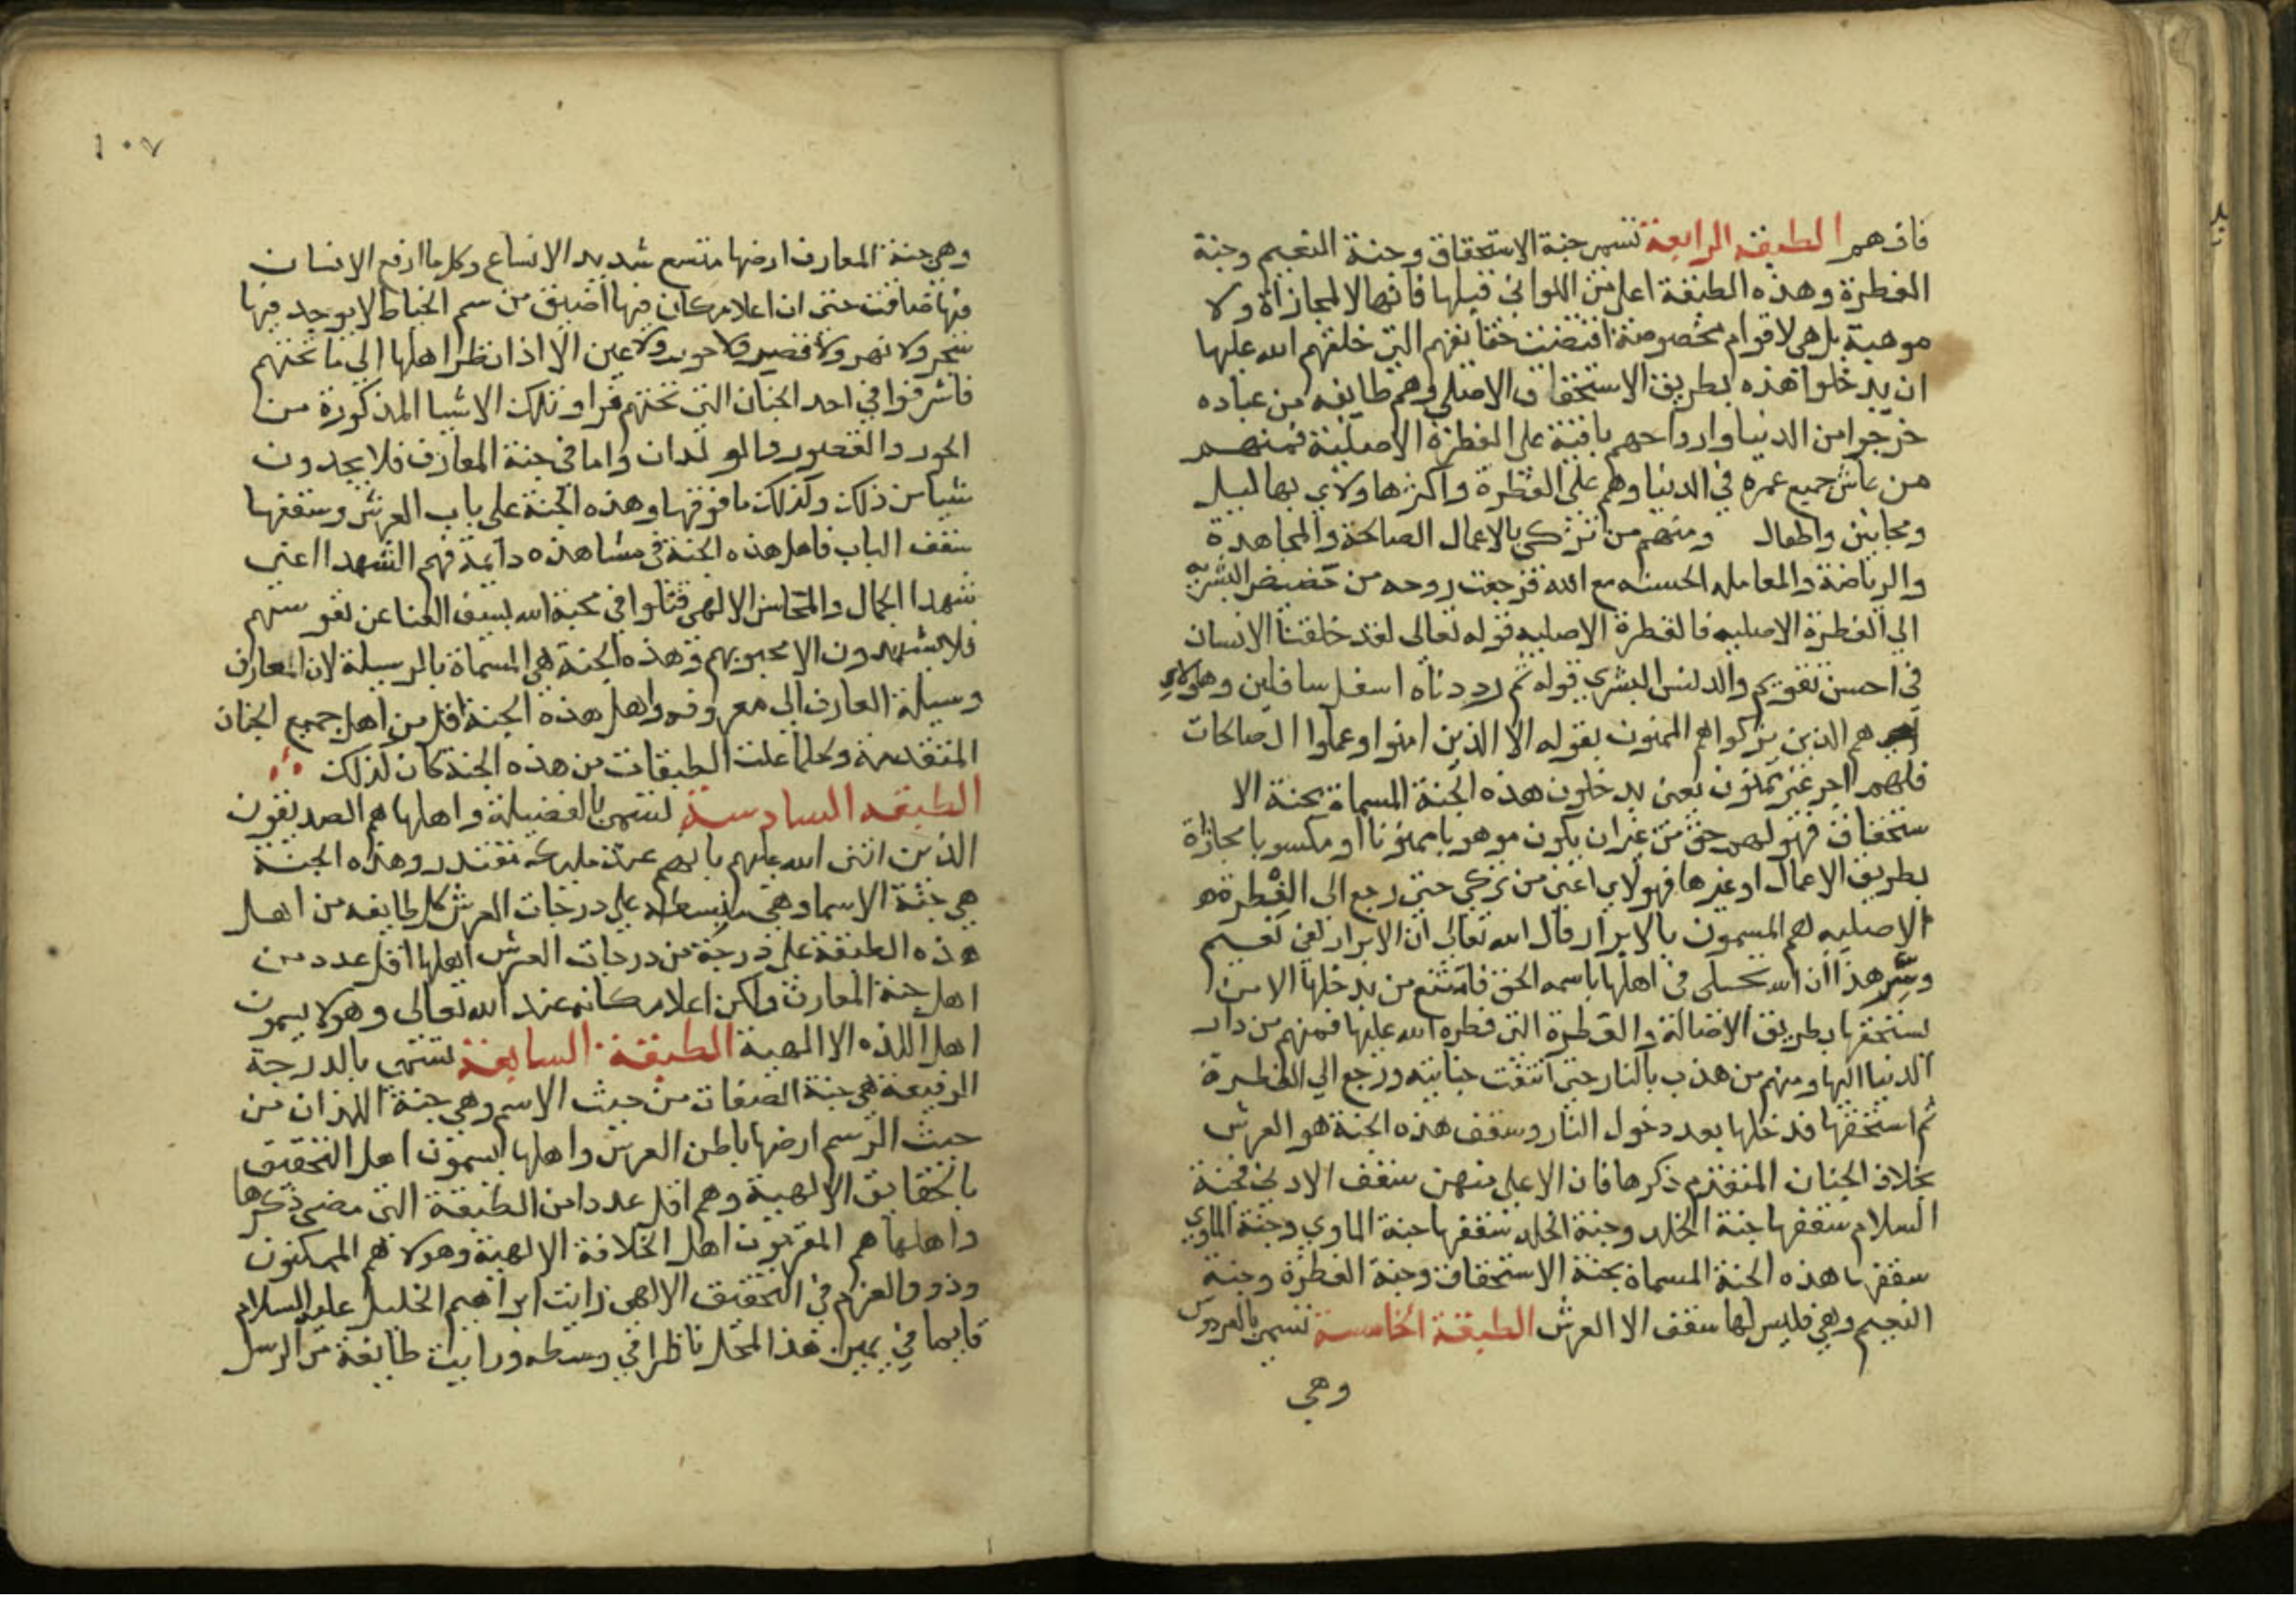 فافهم الطبقه الرابعة تسمى جنة الاستحقاق وجنة النعيم وجنة
الفطرة وهذه الطبقة اعلى من اللواتي قبلها فانها لا لمجازاة ولا
موهبة بل هي لاقوام مخصوصة اقتضت حقائقهم التي خلقهم الله عليها
ان يدخلوا هذه بطريق الاستحقاق الاصلي وهم طايفه من عباده
خرجوا من الدنيا وارواحهم باقية على الفطرة الاصلية فمنهم
من عاش جميع عمره في الدنيا وهم على الفطرة واكثرها ولاي بهاليل
ومجانين واطفال ومنهم من تزكي بالاعمال الصالحة والمجاهدة
والرياضة والمعامله الحسنه مع الله فرجعت روحه من حضيض البشريه
الى الفطرة الاصليه فالفطرة الاصليه قوله تعالى لقد خلقنا الانسان
في احسن تقويم والدنس البشري قوله ثم رددناه اسفل سافلين وهولاي
هم الذين يتزكوا هم المنون بقوله الا الذين امنوا وعملوا الصالحات
فلهم اجر غير ممنون يعني يدخلون هذه الجنة المسماة بجنة الا
ستحقاق فهو لهم حق من غير ان يكون موهوبا ممنونا او مكسوبا مجازاة
بطريق الاعمال او غيرها فهولاي اعني من تزكي حتى رجع الى الفطرة
الاصليه هم المسمون بالابرار قال الله تعالى ان الابرار لفي نعيم
وسر هذا ان الله تجلى في اهلها باسمه الحق فامتنع من يدخلها الا من
يستحقها بطريق الاصالة والفطرة التي فطره الله عليها فمنهم من دار
الدنيا اليها ومنهم من هذب بالنار حتى انتفت جنايته ورجع الى الفطرة
ثم استحقها فدخلها بعد دخول النار وسقف هذه الجنة هو العرش
بخلاف الجنان المتقدم ذكرها فان الاعلى منهن سقف الادنى فجنة
السلام سقفها جنة الخلد وجنة الخلد سقفها جنة الماوي وجنة الماوي
سقفها هذه الجنة المسماة بجنة الاستحقاق وجنة الفطرة وجنة
النعيم وهي فليس لها سقف الا العرش الطبقة الخامسة تسمى بالفردوس
وهي
١٠٧
وهي جنة المعارف ارضها متسع شديد الاتساع وكل ما ارفع الانسان
فيها ضاقت حتى ان اعلا مكان فيها اضيق من سم الخياط لا يوجد فيها
شجر ولا نهر ولا قصير ولا حور ولا عين الا اذا نظر اهلها الى ما تحتهم
فاشرفوا في احد الجنان التي تحتهم فراو تلك الاشيا المذكورة من
الحور والقصور والولدان واما في جنة المعارف فلا يجدون
شيا من ذلك وكذلك ما فوقها وهذه الجنة على باب العرش وسقفها
سقف الباب فاهل هذه الجنة في مشاهده دايمة فهم الشهدا اعني
شهدا الجمال والمحاسن الالهي قتلوا في محبة الله بسيف الفنا عن نفوسهم
فلا يشهدون الا محبوبهم وهذه الجنة هي المسماة بالوسيلة لان المعارف
وسيلة العارف الى معروفه واهل هذه الجنة اقل من اهل جميع الجنان
المتقدمة وكلما علت الطبقات من هذه الجنة كان كذلك
الطبقه السادسة تسمى بالفضيلة واهلها هم الصديقون
الذين اثنى الله عليهم بانهم عند مليك مقتدر وهذه الجنة
هي جنة الاسما وهي منبسطه على درجات العرش كل طايفه من اهل
هذه الطبقة على درجة من درجات العرش اهلها اقل عدد من
اهل جنة المعارف ولكن اعلا مكانه عند الله تعالى وهولا يسمون
اهل اللذه الا الهية الطبقة السابعة تسمى بالدرجة
الرفيعة هي جنة الصفات من حيث الاسم وهي جنة الذات من
حيث الرسم ارضها باطن العرش واهلها يسمون اهل التحقيق
بالحقايق الالهية وهم اقل عددا من الطبقة التي مضى ذكرها
واهلها هم المقربون اهل الخلافة الالهية وهولا هم الممكنون
وذوو العزم في التحقيق الالهي رايت ابراهيم الخليل عليه السلام
قايما في يمين هذا المحل ناظرا في وسطه ورايت طايفة من الرسل